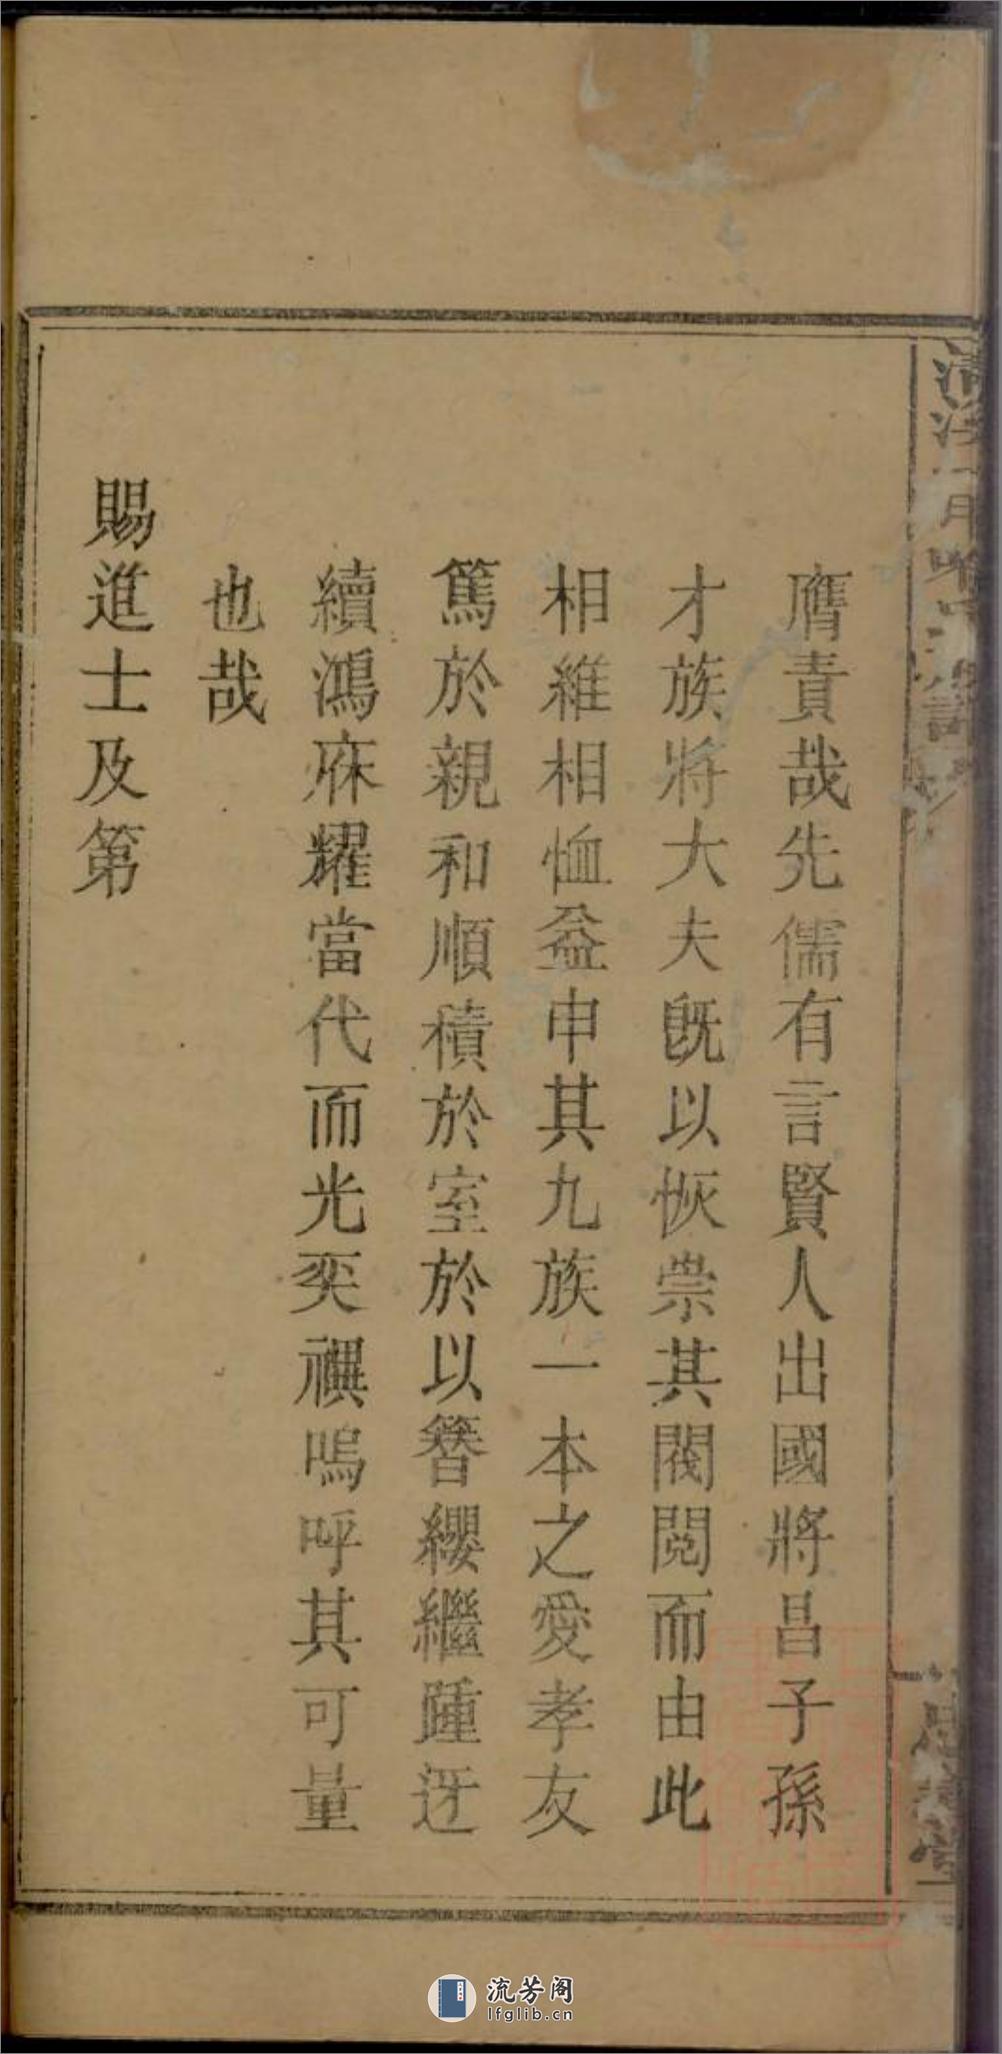 膺責哉先儒有言賢人出國將昌子孫
才族將大夫旣以恢崇其閥閱而由此
相維相恤益申其九族一本之愛孝友
篤於親和順積於室於以簪纓繼踵迓
續鴻庥耀當代而光奕禩嗚呼其可量
也哉
賜進士及第
流芳阁
lfglib.cn